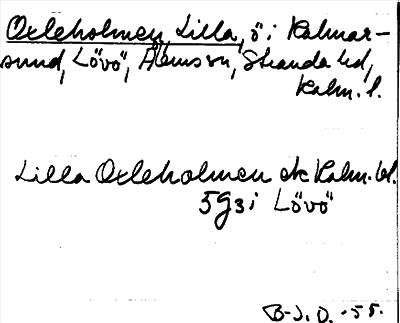 Oxleholmen, Lilla, ö i Kalmar-
sund, Lövö, Ålems sn, Stranda hd,
Kalm. l.
Lilla Oxleholmen ek Kalm. bl.
5 g 3 i Lövö
B-J. O. -55.